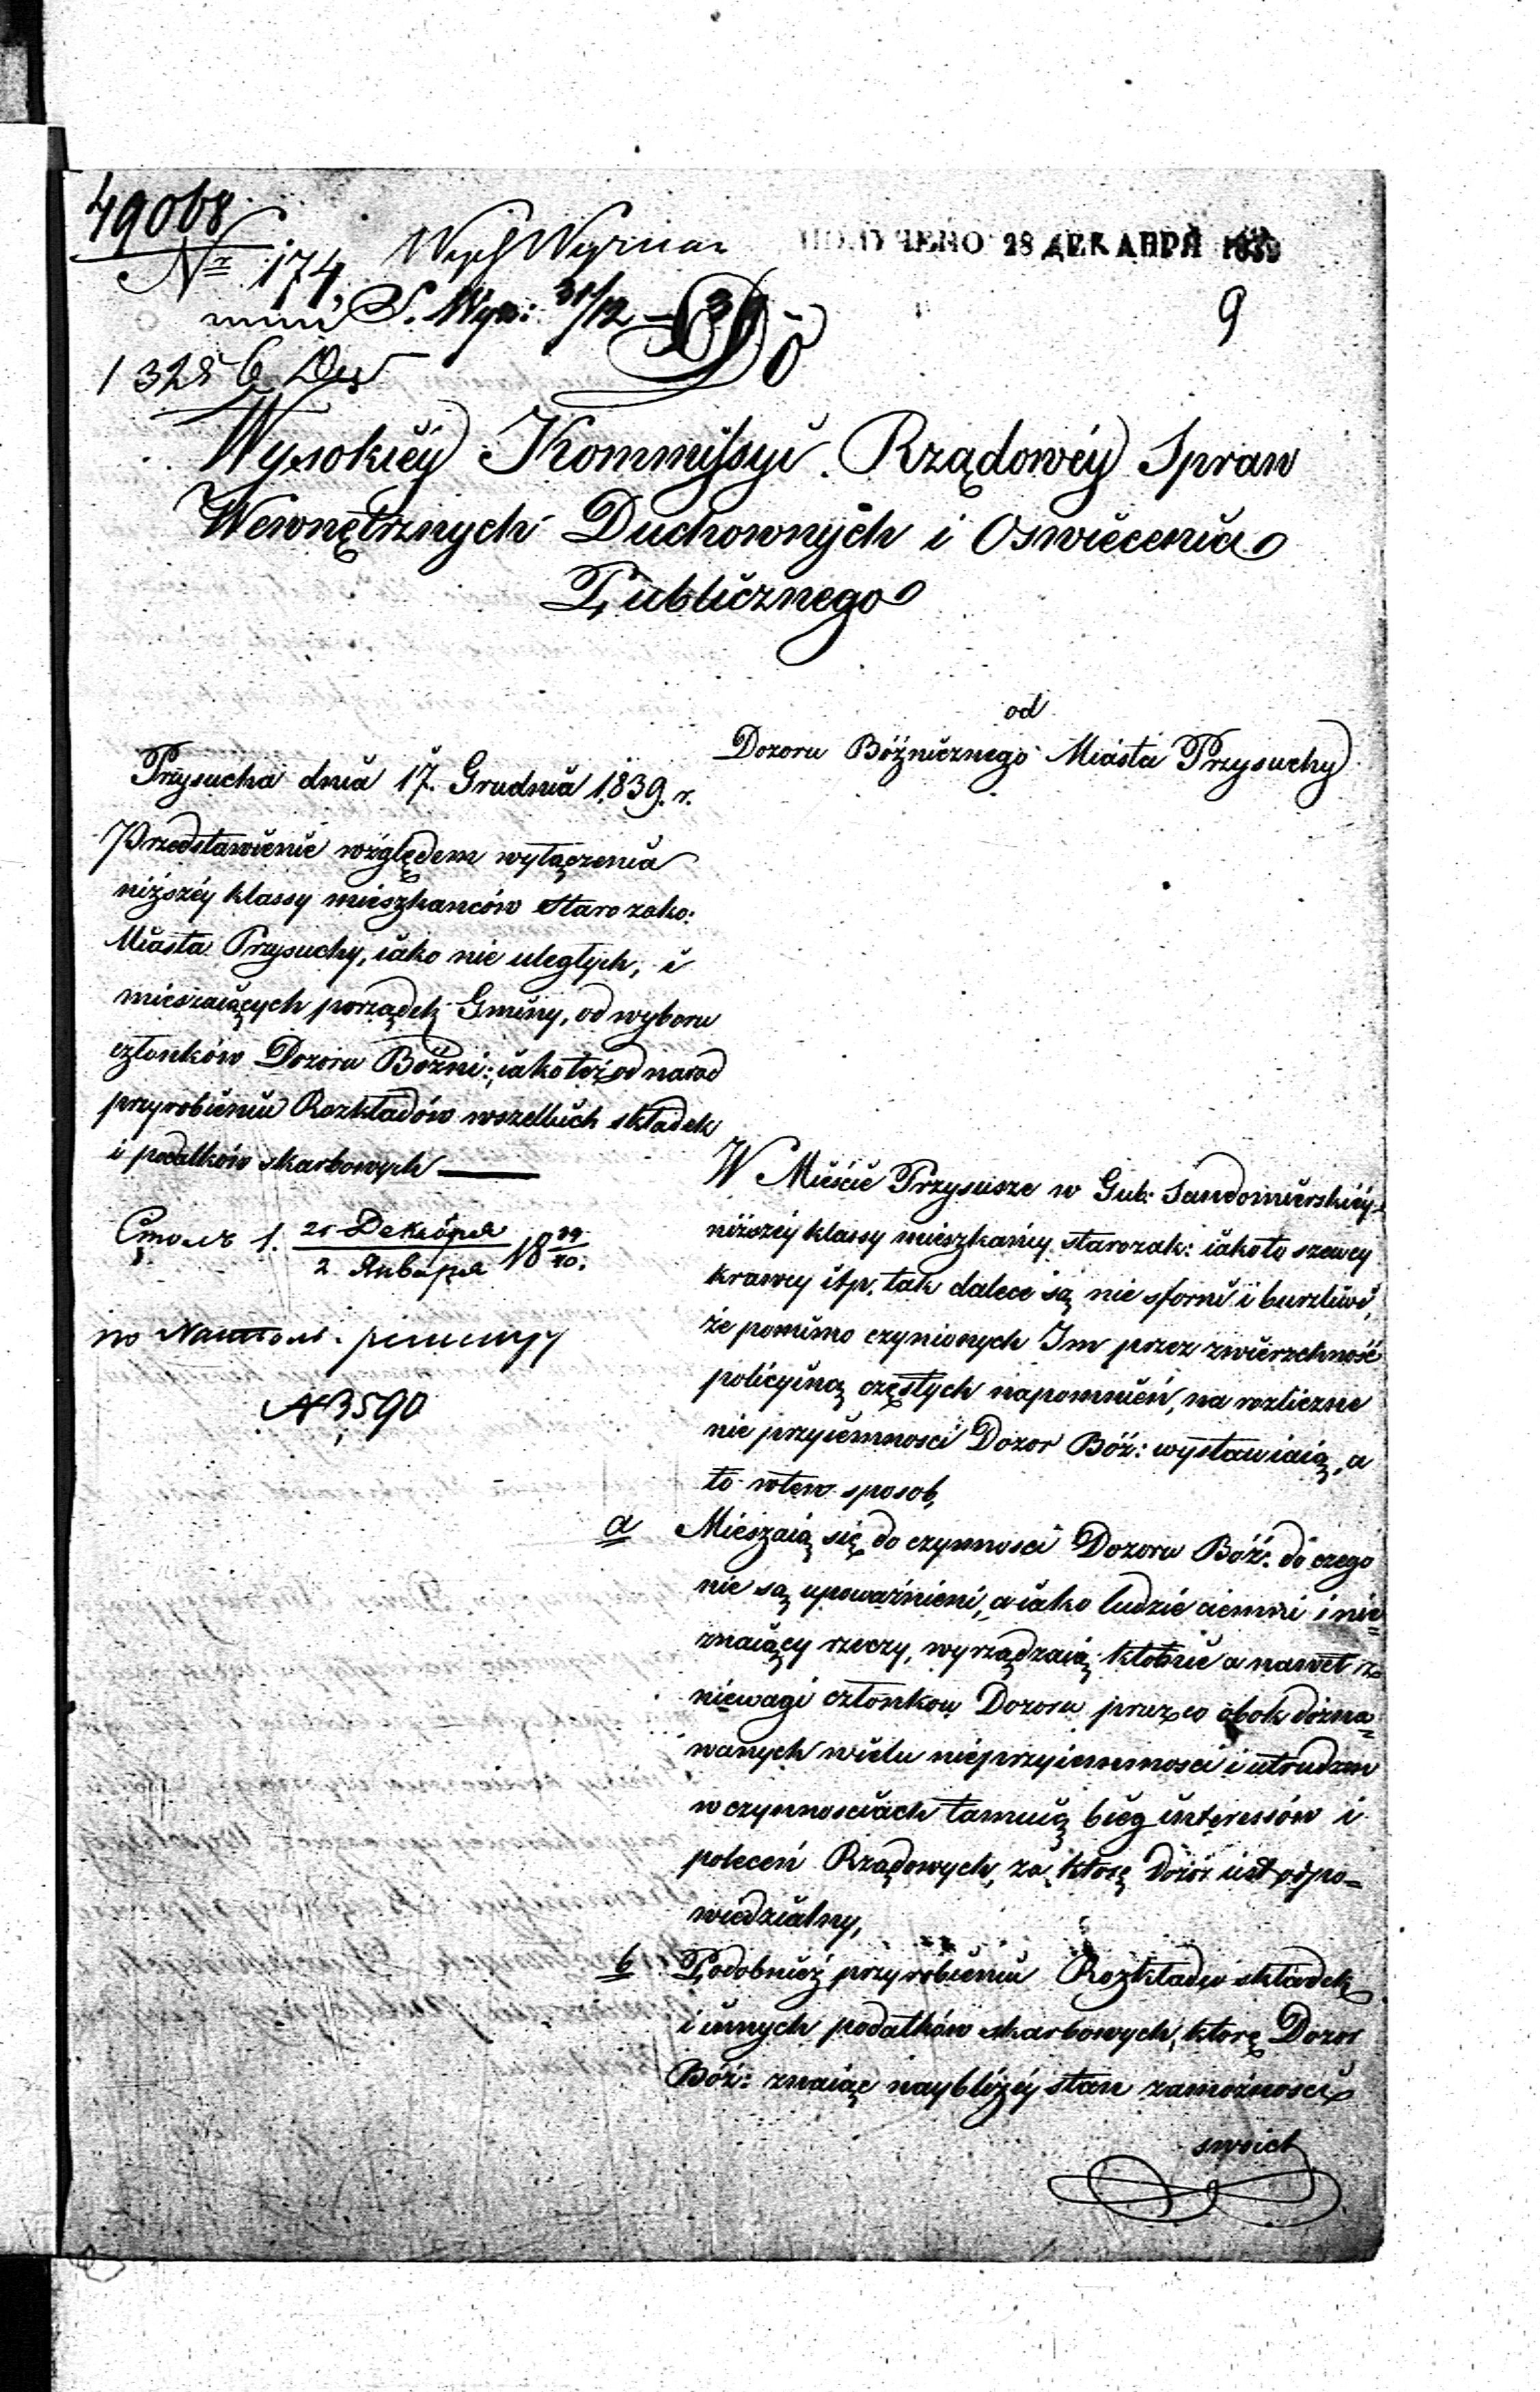 49068
Nr 174,
ПОЛУЧЕНО 28 ДЕКАБРЯ 1839
9
31/12
Do
1328
Wysokiéy Kommissyi Rządowéy Spraw
Wewnętrznych Duchownych i Oswiecenia
Publicznego
od
Dozoru Bóżnicznego Miasta Przysuchy
Przysucha dnia 17. Grudnia 1839. r.
Przedstawienie względem wyłączenia
niższéy klassy mieszkanców Starozako:
Miasta Przysuchy, iako nie uległych, i
mieszaiących porządek Gminy, od wyboru
członków Dozoru Bożni: iakoteż od narad
przyrobieniu Rozkładów wszelkich składek
i podatków skarbowych
Столъ 1. 21 Декабря / 2 Января 18 39/40.
по
N 3590
W Mieście Przysusze w Gub: Sandomierskiéy
niższéy klassy mieszkańcy starozak: iakoto szewcy
krawcy itp. tak dalece są nie sforni i burzliwi,
że pomimo czynionych Im przez zwierzchność
policyiną częstych napomnień, na rozliczne
nie przyiemnosci Dozor Bóż: wystawiaią, a
to wten sposob,
a Mieszaią się do czynnosci Dozoru Bóż: do czego
nie są upoważnieni, a iako ludzie ciemni i nie=
znaiący rzeczy, wyrządzaią kłotnie a nawet z
niewagi członkow Dozoru przez co obok dozna=
wanych wielu nieprzyiemnosci i utrudzen
w czynnosciach tamuią bieg interessów i
poleceń Rządowych, za ktore dozór iest odpo=
wiedzialny,
b Podobnież przyrobieniu Rozkładu składek
i innych podatków skarbowych, ktore Dozor
Bóż: znaiąc naybliżéy stan zamożnosci
swoich